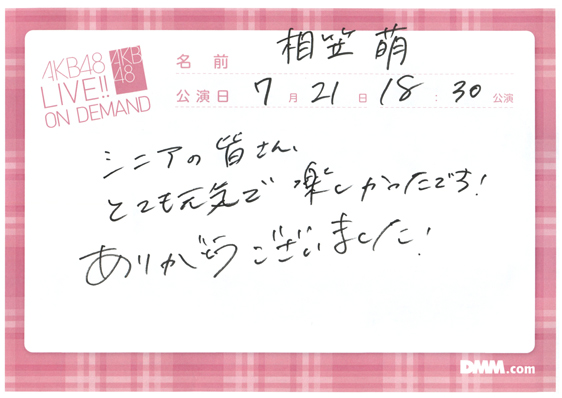 AKB48
LIVE!!
ON DEMAND
AKB
48
名前 相笠 萌
公演日 7月21日 18:30公演
シニアの皆さん、
とても元気で 楽しかったです!
ありがとうございました!
DMM.com